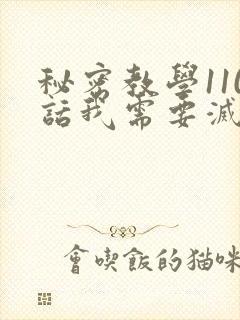 秘密教學110
話我需要減
會喫飯的貓咪